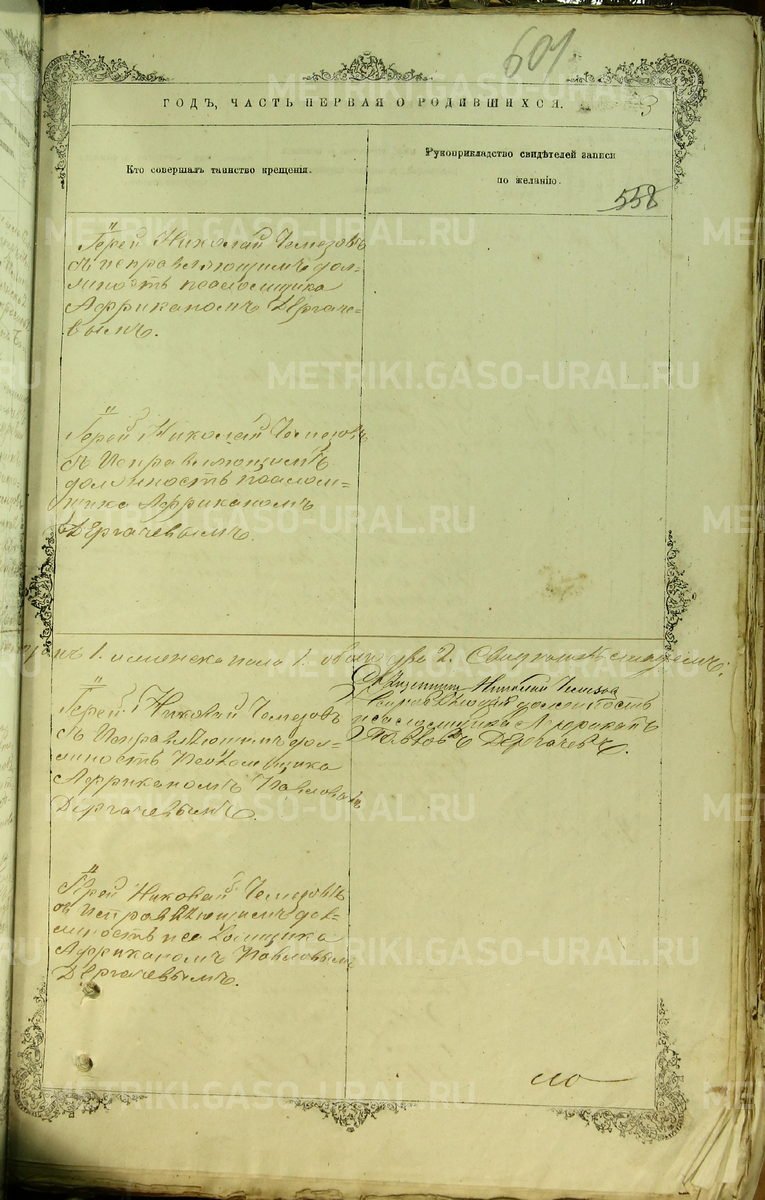 601
ГОДЪ, ЧАСТЬ ПЕРВАЯ О РОДИВШИХСЯ.
3
Кто совершалъ таинство крещенія.
Рукоприкладство свидѣтелей записи
по желанію.
558
Іерей Николай Чемезовъ
съ исправляющимъ дол-
жность псаломщика
Африканомъ Дергаче-
вымъ.
Іерей Николай Чемезовъ
съ исправляющимъ
должность псалом-
щика Африканомъ
Дергачевымъ.
1. женска пола 1. обоего два 2.
Священникъ Николай Чемезовъ
Исправляющій должность
псаломщика Африканъ
Павловъ Дергачевъ.
Іерей Николай Чемезовъ
съ исправляющимъ дол-
жность псаломщика
Африканомъ Павловымъ
Дергачевымъ.
Іерей Николай Чемезовъ
съ исправляющимъ дол-
жность псаломщика
Африканомъ Павловымъ
Дергачевымъ.
METRIKI.GASO-URAL.RU